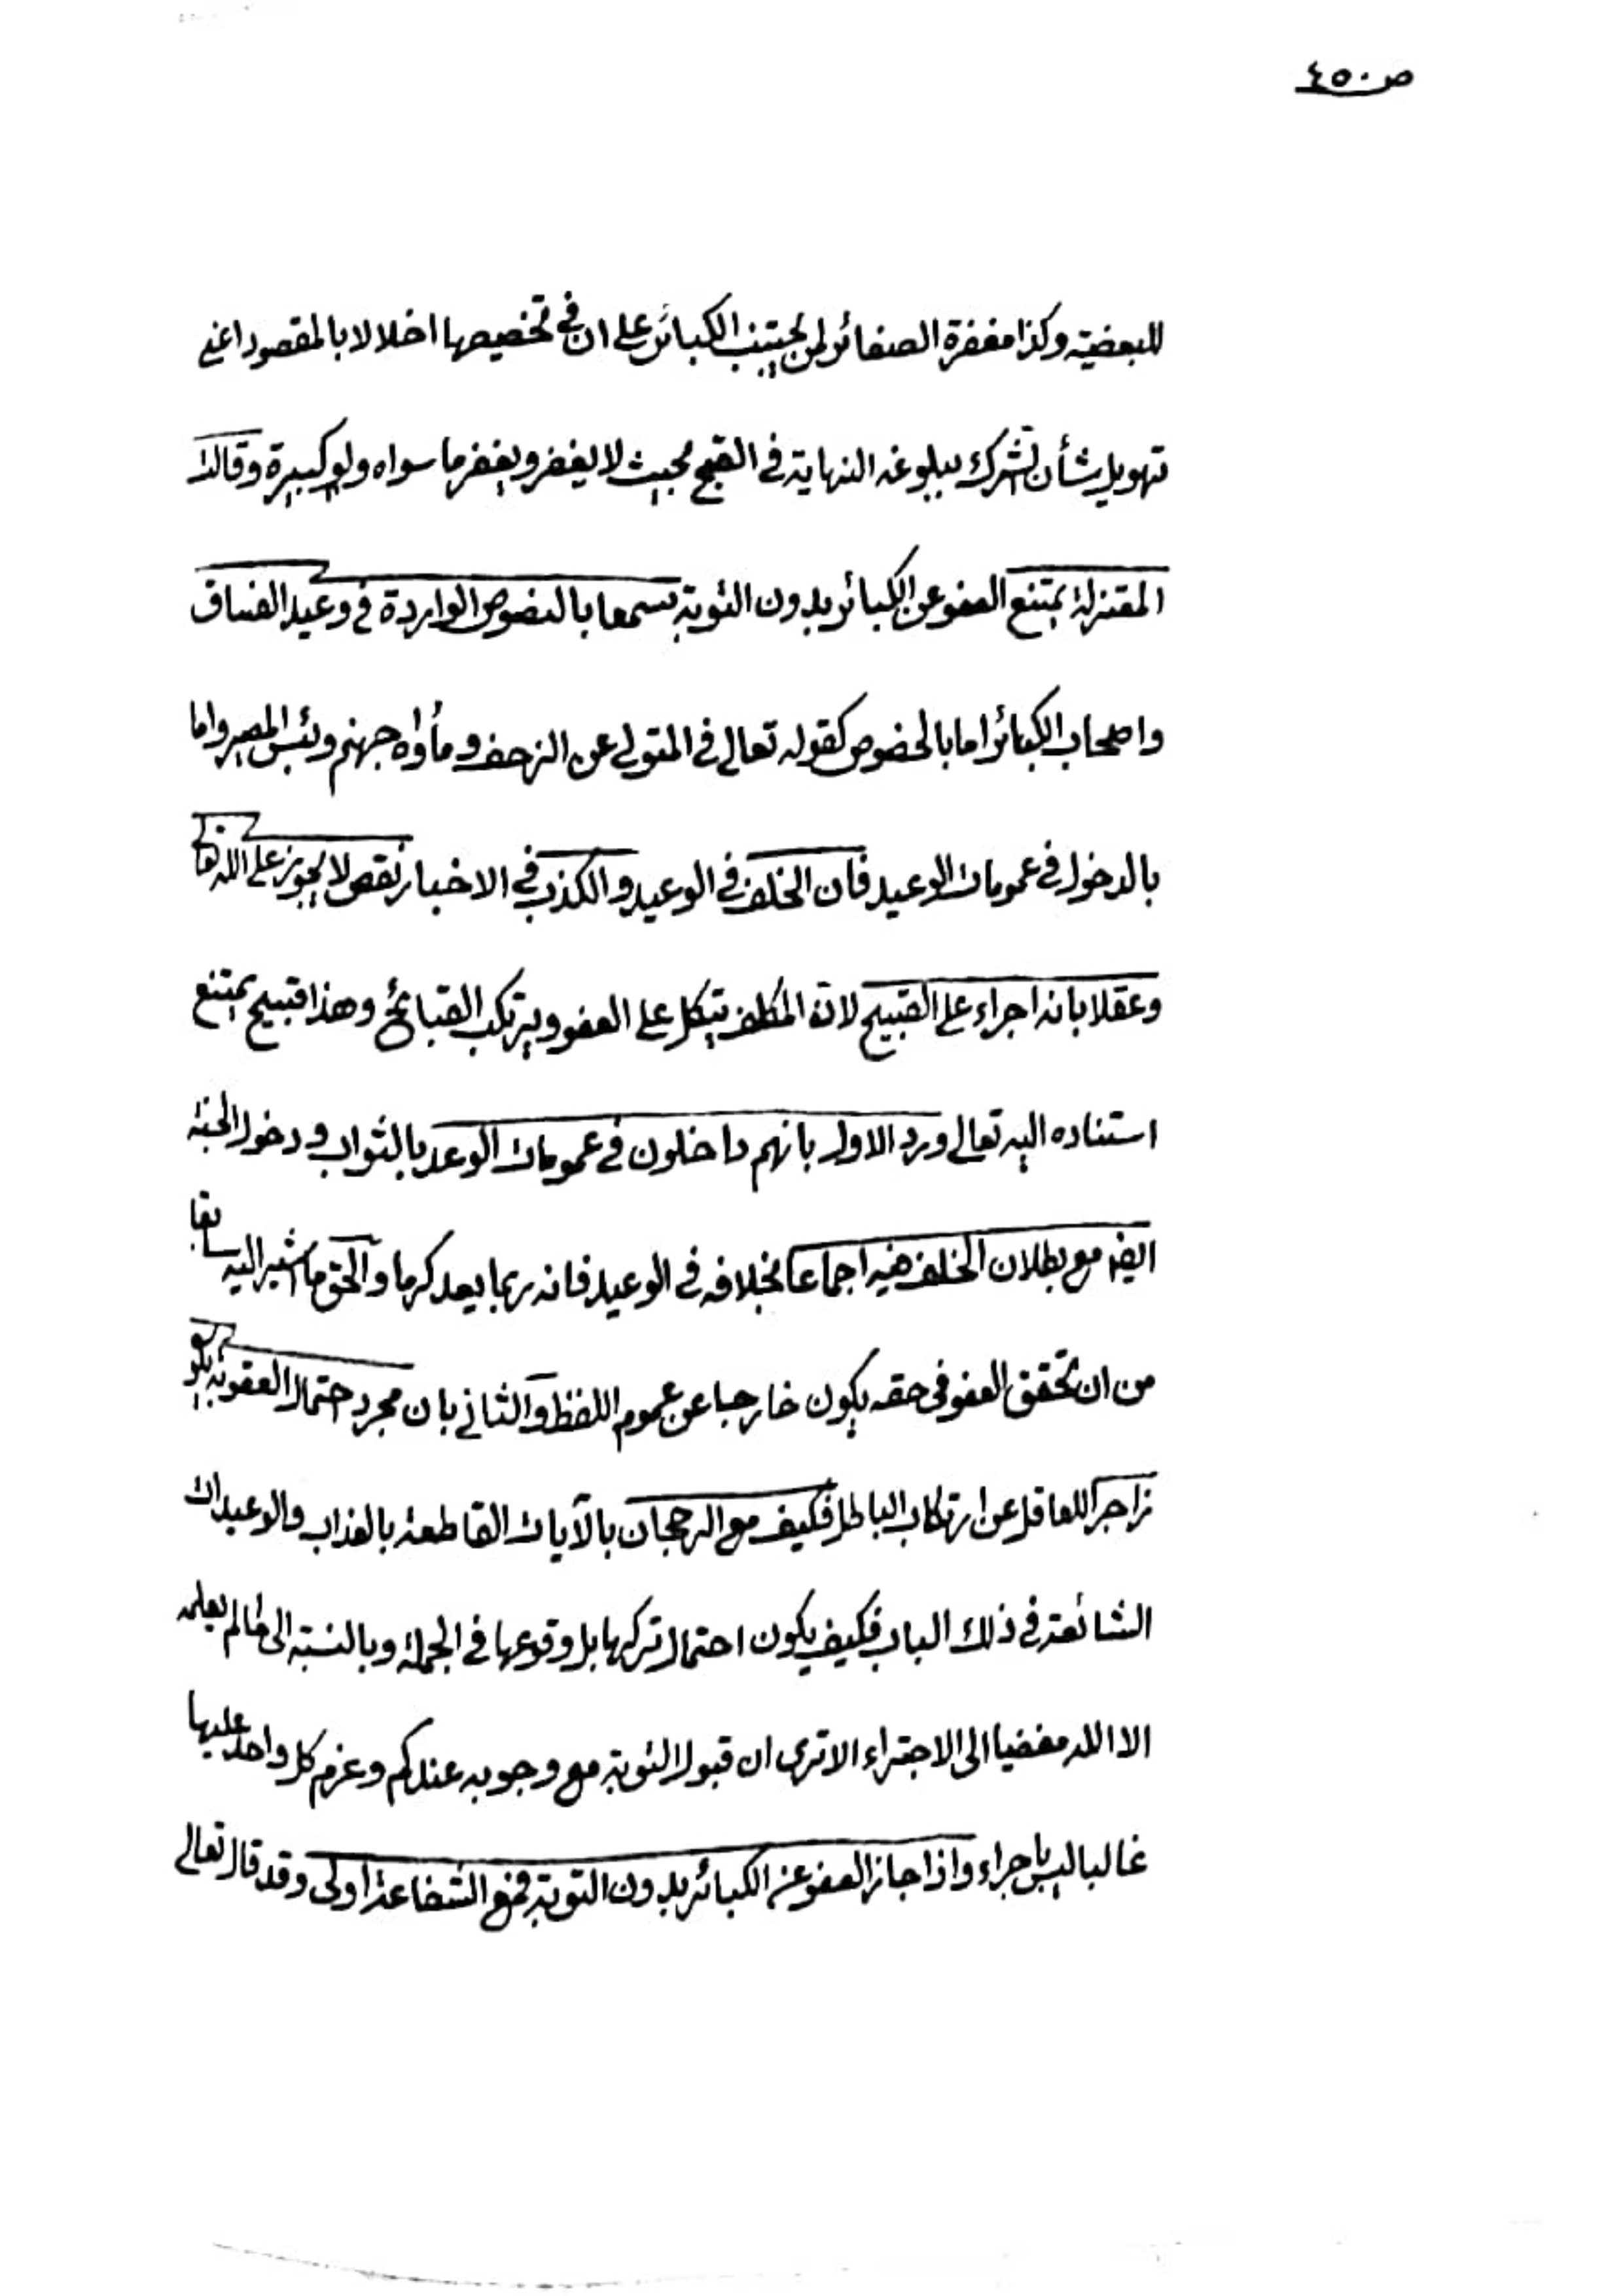 ص ٤٥٠
للبعضية وكذا مغفرة الصغائر لمن يجتنب الكبائر على ان في تخصيصها اخلالا بالمقصود اعني
تهويل شأن الشرك ببلوغه النهاية في القبح بحيث لا يغفر ويغفر ما سواه ولو كبيرة وقالت
المعتزلة يمتنع العفو عن الكبائر بدون التوبة سمعا بالنصوص الواردة في وعيد الفساق
واصحاب الكبائر اما بالخصوص كقوله تعالى في المتولي عن الزحف ومأواه جهنم وبئس المصير واما
بالدخول في عمومات الوعيد فان الخلف في الوعيد والكذب في الاخبار نقص لا يجوز على الله تعا
وعقلا بانه اجراء على القبيح لان المكلف يتكل على العفو ويرتكب القبائح وهذا قبيح يمتنع
استناده اليه تعالى ورد الاول بانهم داخلون في عمومات الوعد بالثواب ودخول الجنة
ايضا مع بطلان الخلف فيه اجماعا بخلافه في الوعيد فانه ربما يعد كرما والحق ما اشير اليه سابقا
من ان تحقق العفو في حقه يكون خارجا عن عموم اللفظ والثاني بان مجرد احتمال العقوبة يكو
زاجرا للعاقل عن ارتكاب الباطل فكيف مع الرجحان بالآيات القاطعة بالعذاب والوعيدات
الشائعة في ذلك الباب فكيف يكون احتمال تركها بل وقوعها في الجملة وبالنسبة الى ظالم يعلمه
الا الله مفضيا الى الاجتراء الا ترى ان قبول التوبة مع وجوبه عندكم وعزم كل واحد عليها
غالبا ليس باجراء واذا جاز العفو عن الكبائر بدون التوبة فمع الشفاعة اولى وقد قال تعالى